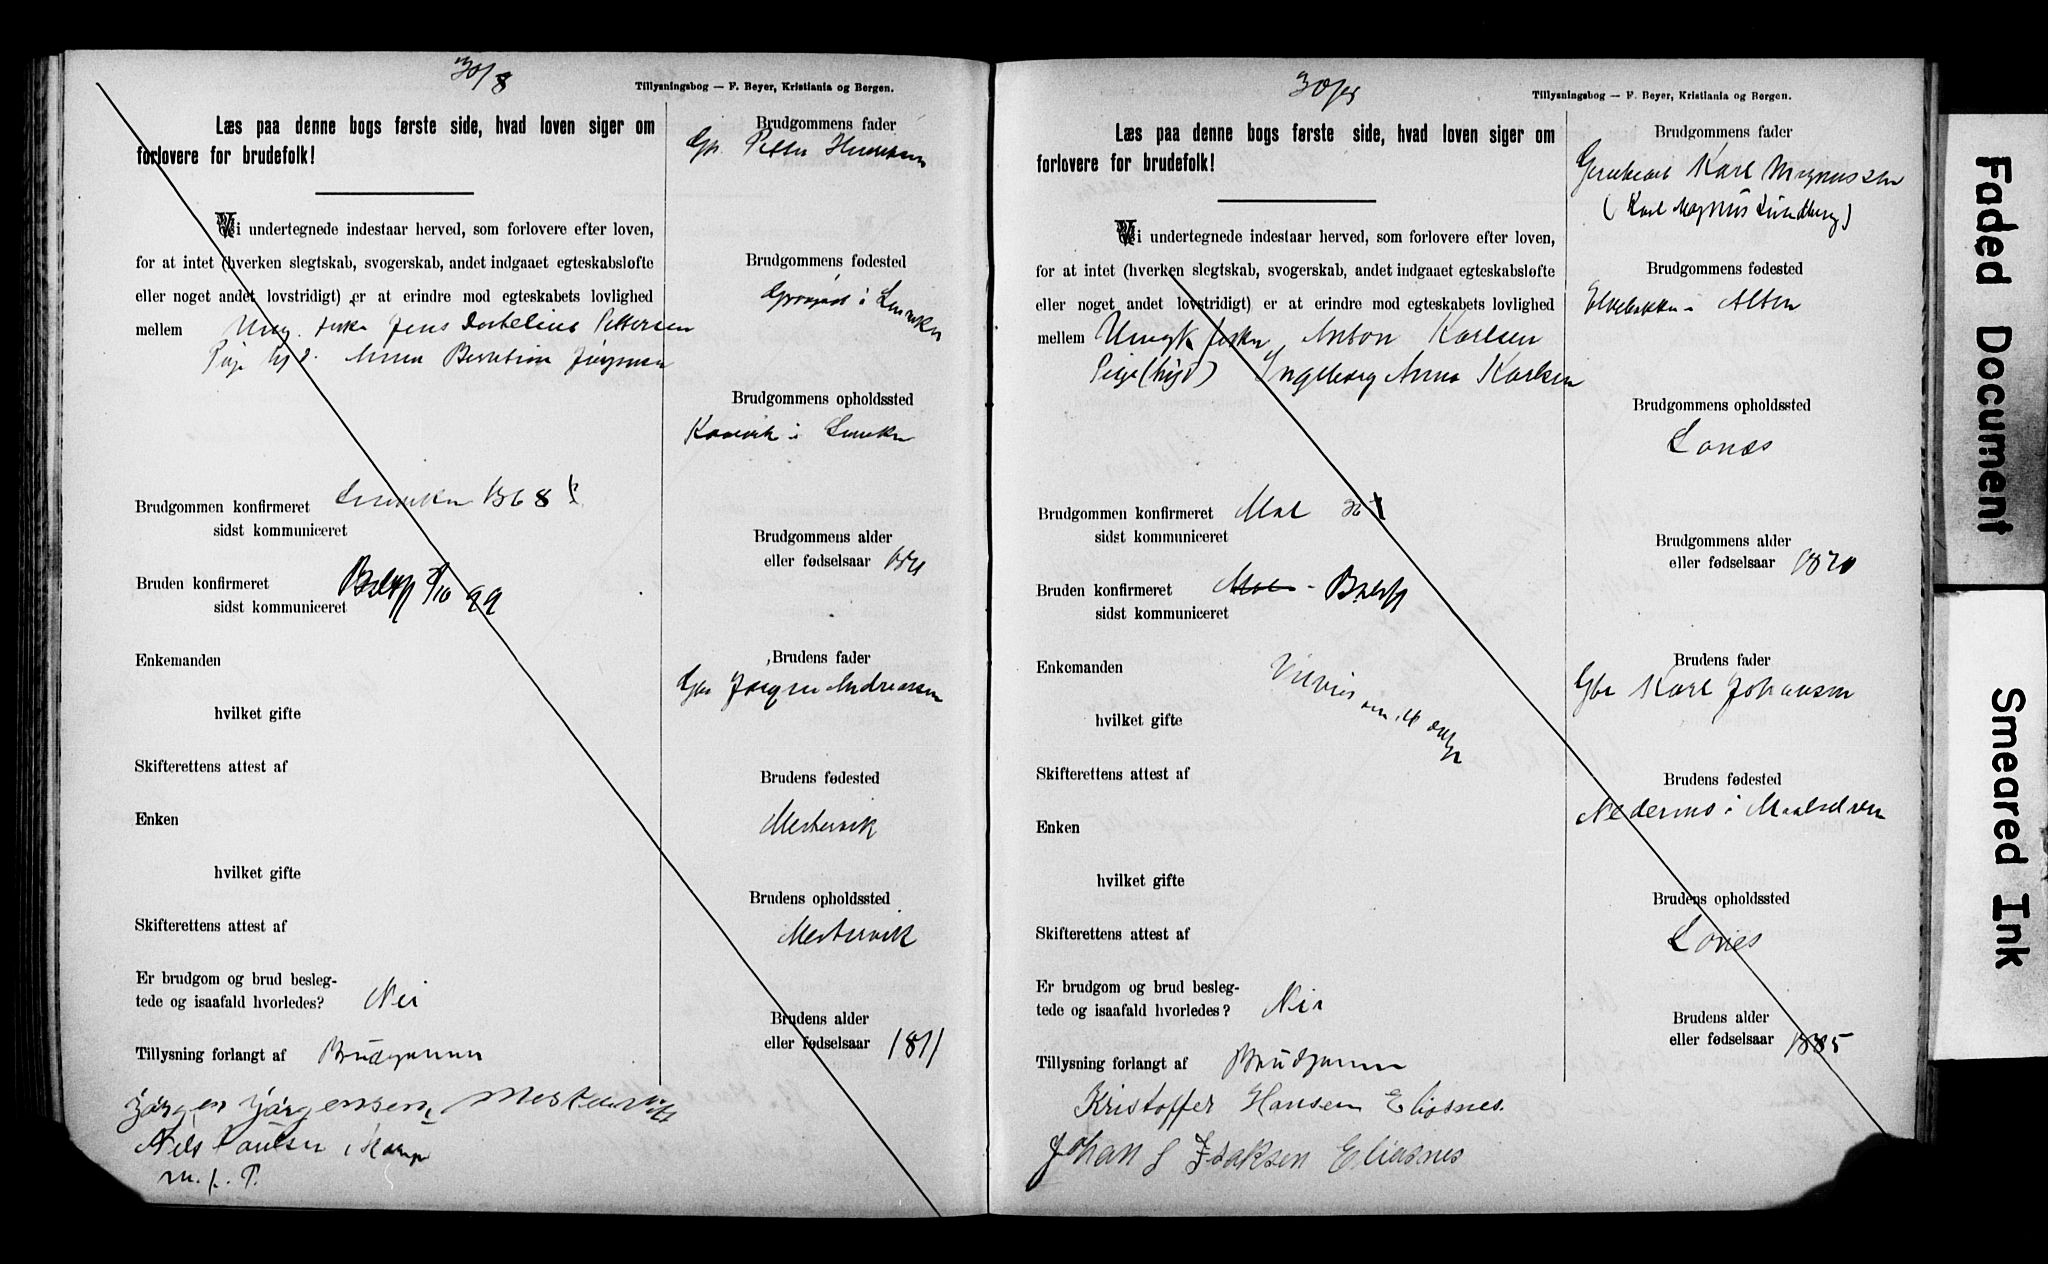 30/8
Tillysningsbog — F. Beyer, Kristiania og Bergen.
Læs paa denne bogs første side, hvad loven siger om
forlovere for brudefolk!
Vi undertegnede indestaar herved, som forlovere efter loven,
for at intet (hverken slegtskab, svogerskab, andet indgaaet egteskabsløfte
eller noget andet lovstridigt) er at erindre mod egteskabets lovlighed
mellem Ung. fisker Jens Pettersen
Pige Anna
Brudgommen konfirmeret 1868
sidst kommuniceret
Bruden konfirmeret Balsfj 8/10 99
sidst kommuniceret
Enkemanden
hvilket gifte
Skifterettens attest af
Enken
hvilket gifte
Skifterettens attest af
Er brudgom og brud besleg-
tede og isaafald hvorledes? Nei
Tillysning forlangt af Brudgommen
Jørgen Jørgensen, Mestervik
Nils Paulsen i
m. f. P.
Brudgommens fader
Petter
Brudgommens fødested
i Lenviken
Brudgommens opholdssted
i Lenviken
Brudgommens alder
eller fødselsaar
Brudens fader
Gbr Jørgen Andreassen
Brudens fødested
Mestervik
Brudens opholdssted
Mestervik
Brudens alder
eller fødselsaar
Tillysningsbog — F. Beyer, Kristiania og Bergen.
Læs paa denne bogs første side, hvad loven siger om
forlovere for brudefolk!
Vi undertegnede indestaar herved, som forlovere efter loven,
for at intet (hverken slegtskab, svogerskab, andet indgaaet egteskabsløfte
eller noget andet lovstridigt) er at erindre mod egteskabets lovlighed
mellem Ungk fisker Anton Karlsen
Pige Ingeborg Anna Karlsen
Brudgommen konfirmeret
sidst kommuniceret
Bruden konfirmeret Balsfj
sidst kommuniceret
Enkemanden
hvilket gifte
Skifterettens attest af
Enken
hvilket gifte
Skifterettens attest af
Er brudgom og brud besleg-
tede og isaafald hvorledes? Nei
Tillysning forlangt af Brudgommen
Kristoffer Hansen Eliasnes.
Johan J Isaksen Eliasnes
Brudgommens fader
Karl Magnussen
(Karl Magnus Lundberg)
Brudgommens fødested
Elvebakken i Alten
Brudgommens opholdssted
Lones
Brudgommens alder
eller fødselsaar 1870
Brudens fader
Gbr Karl Johansen
Brudens fødested
Nedernes i Maalselven
Brudens opholdssted
Lones
Brudens alder
eller fødselsaar 1885
Faded Document
Smeared Ink